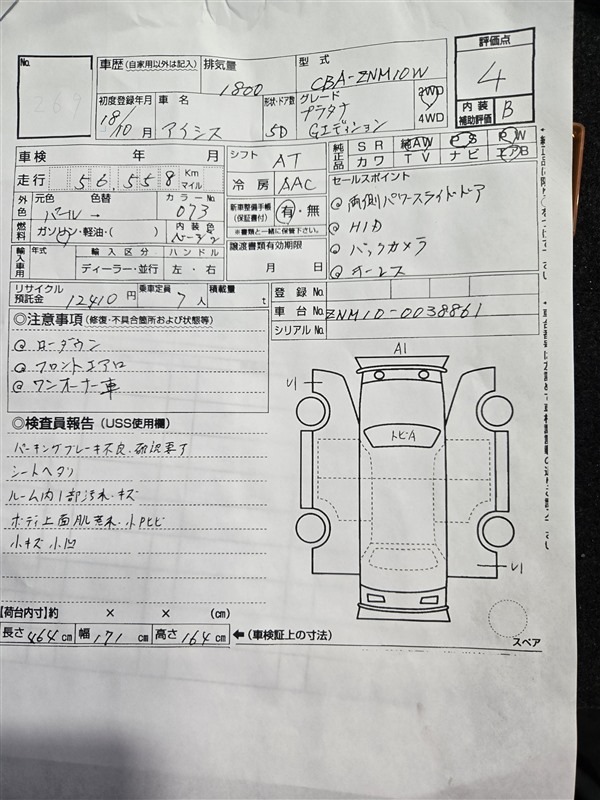 No.
車歴 (自家用以外は記入) 排気量 1800 型式 CBA-ZNM10W 評価点 4
初度登録年月 18/10月 車名 アイシス 形状・ドア数 5D グレード プラタナ Gエディション 2WD 4WD 内装補助評価 B
車検 年 月 シフト AT 純正品 SR 純AW PS PW
カワ TV ナビ エアB
走行 56,558 Km マイル 冷房 AAC セールスポイント
外色 元色 パール 色替 → カラーNo. 073 新車整備手帳(保証書付) 有・無 ※書類と一緒に保管下さい。
両側パワースライドドア
燃料 ガソリン・軽油・( ) 内装色 ベージュ
HID
輸入車用 年式 輸入区分 ハンドル 譲渡書類有効期限
バックカメラ
ディーラー・並行 左・右 月 日
キーレス
リサイクル預託金 12410円 乗車定員 7人 積載量 t 登録No.
車台No. ZNM10-0038861
シリアルNo.
◎注意事項 (修復・不具合箇所および状態等)
ローダウン
フロントエアロ
ワンオーナー車
A1
トビA
◎検査員報告 (USS使用欄)
パーキングブレーキ不良.確認要す
シートヘタリ
ルーム内1部汚れ.キズ
ボディ上面肌荒れ.小Pヒビ
小キズ小凹
【荷台内寸】約 × × (cm)
長さ 464 cm 幅 171 cm 高さ 164 cm ←(車検証上の寸法)
スペア